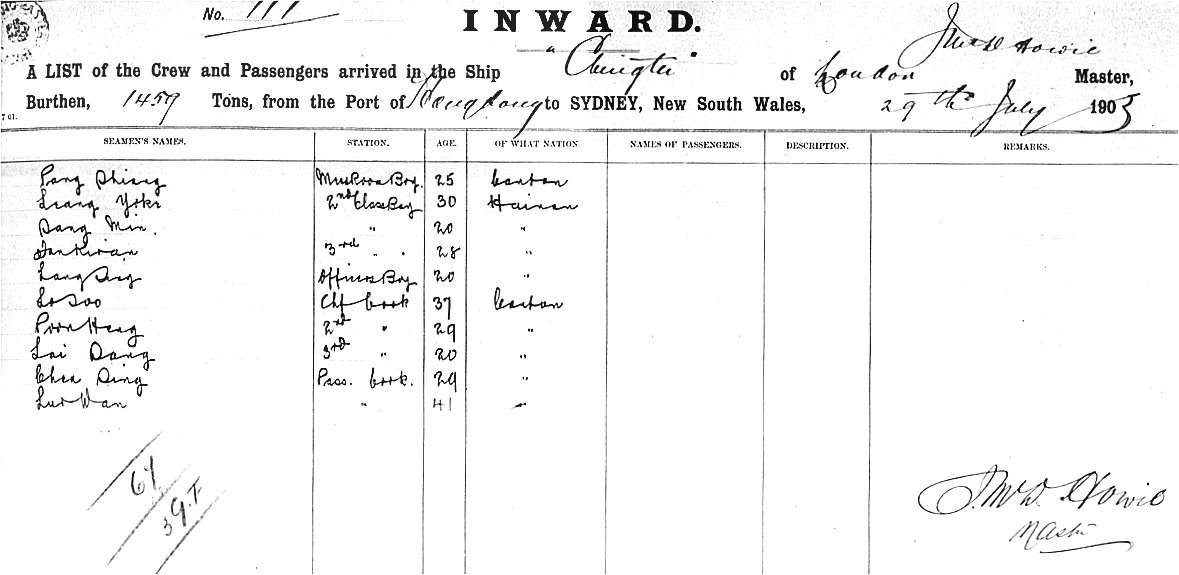 No. 111
INWARD.
Jms W Howie
A LIST of the Crew and Passengers arrived in the Ship "Chingtu" of London Master,
Burthen, 1459 Tons, from the Port of Hong Kong to SYDNEY, New South Wales, 29th July 1903
7 01.
SEAMEN'S NAMES. STATION. AGE. OF WHAT NATION. NAMES OF PASSENGERS. DESCRIPTION. REMARKS.
Pang Shiang Messroom Boy. 25 Canton
Leang Yoke 2nd Class Boy 30 Hainan
Dang Min. " 20 "
3rd " . 28 "
Lang Officers Boy 20 "
Lo Soo Chf Cook 37 Canton
Poon Heng 2nd " 29 "
Lai Dang 3rd " 20 "
Chea Sing Pass. Cook. 29 "
Lui Wan " 41 "
64
39.T
J. McD. Howie
Master